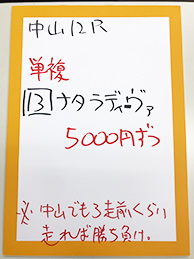 中山12R
単複
13 ナタラディーヴァ
5000円ずつ
※中山でも3走前くらい
走れば勝ち負け。